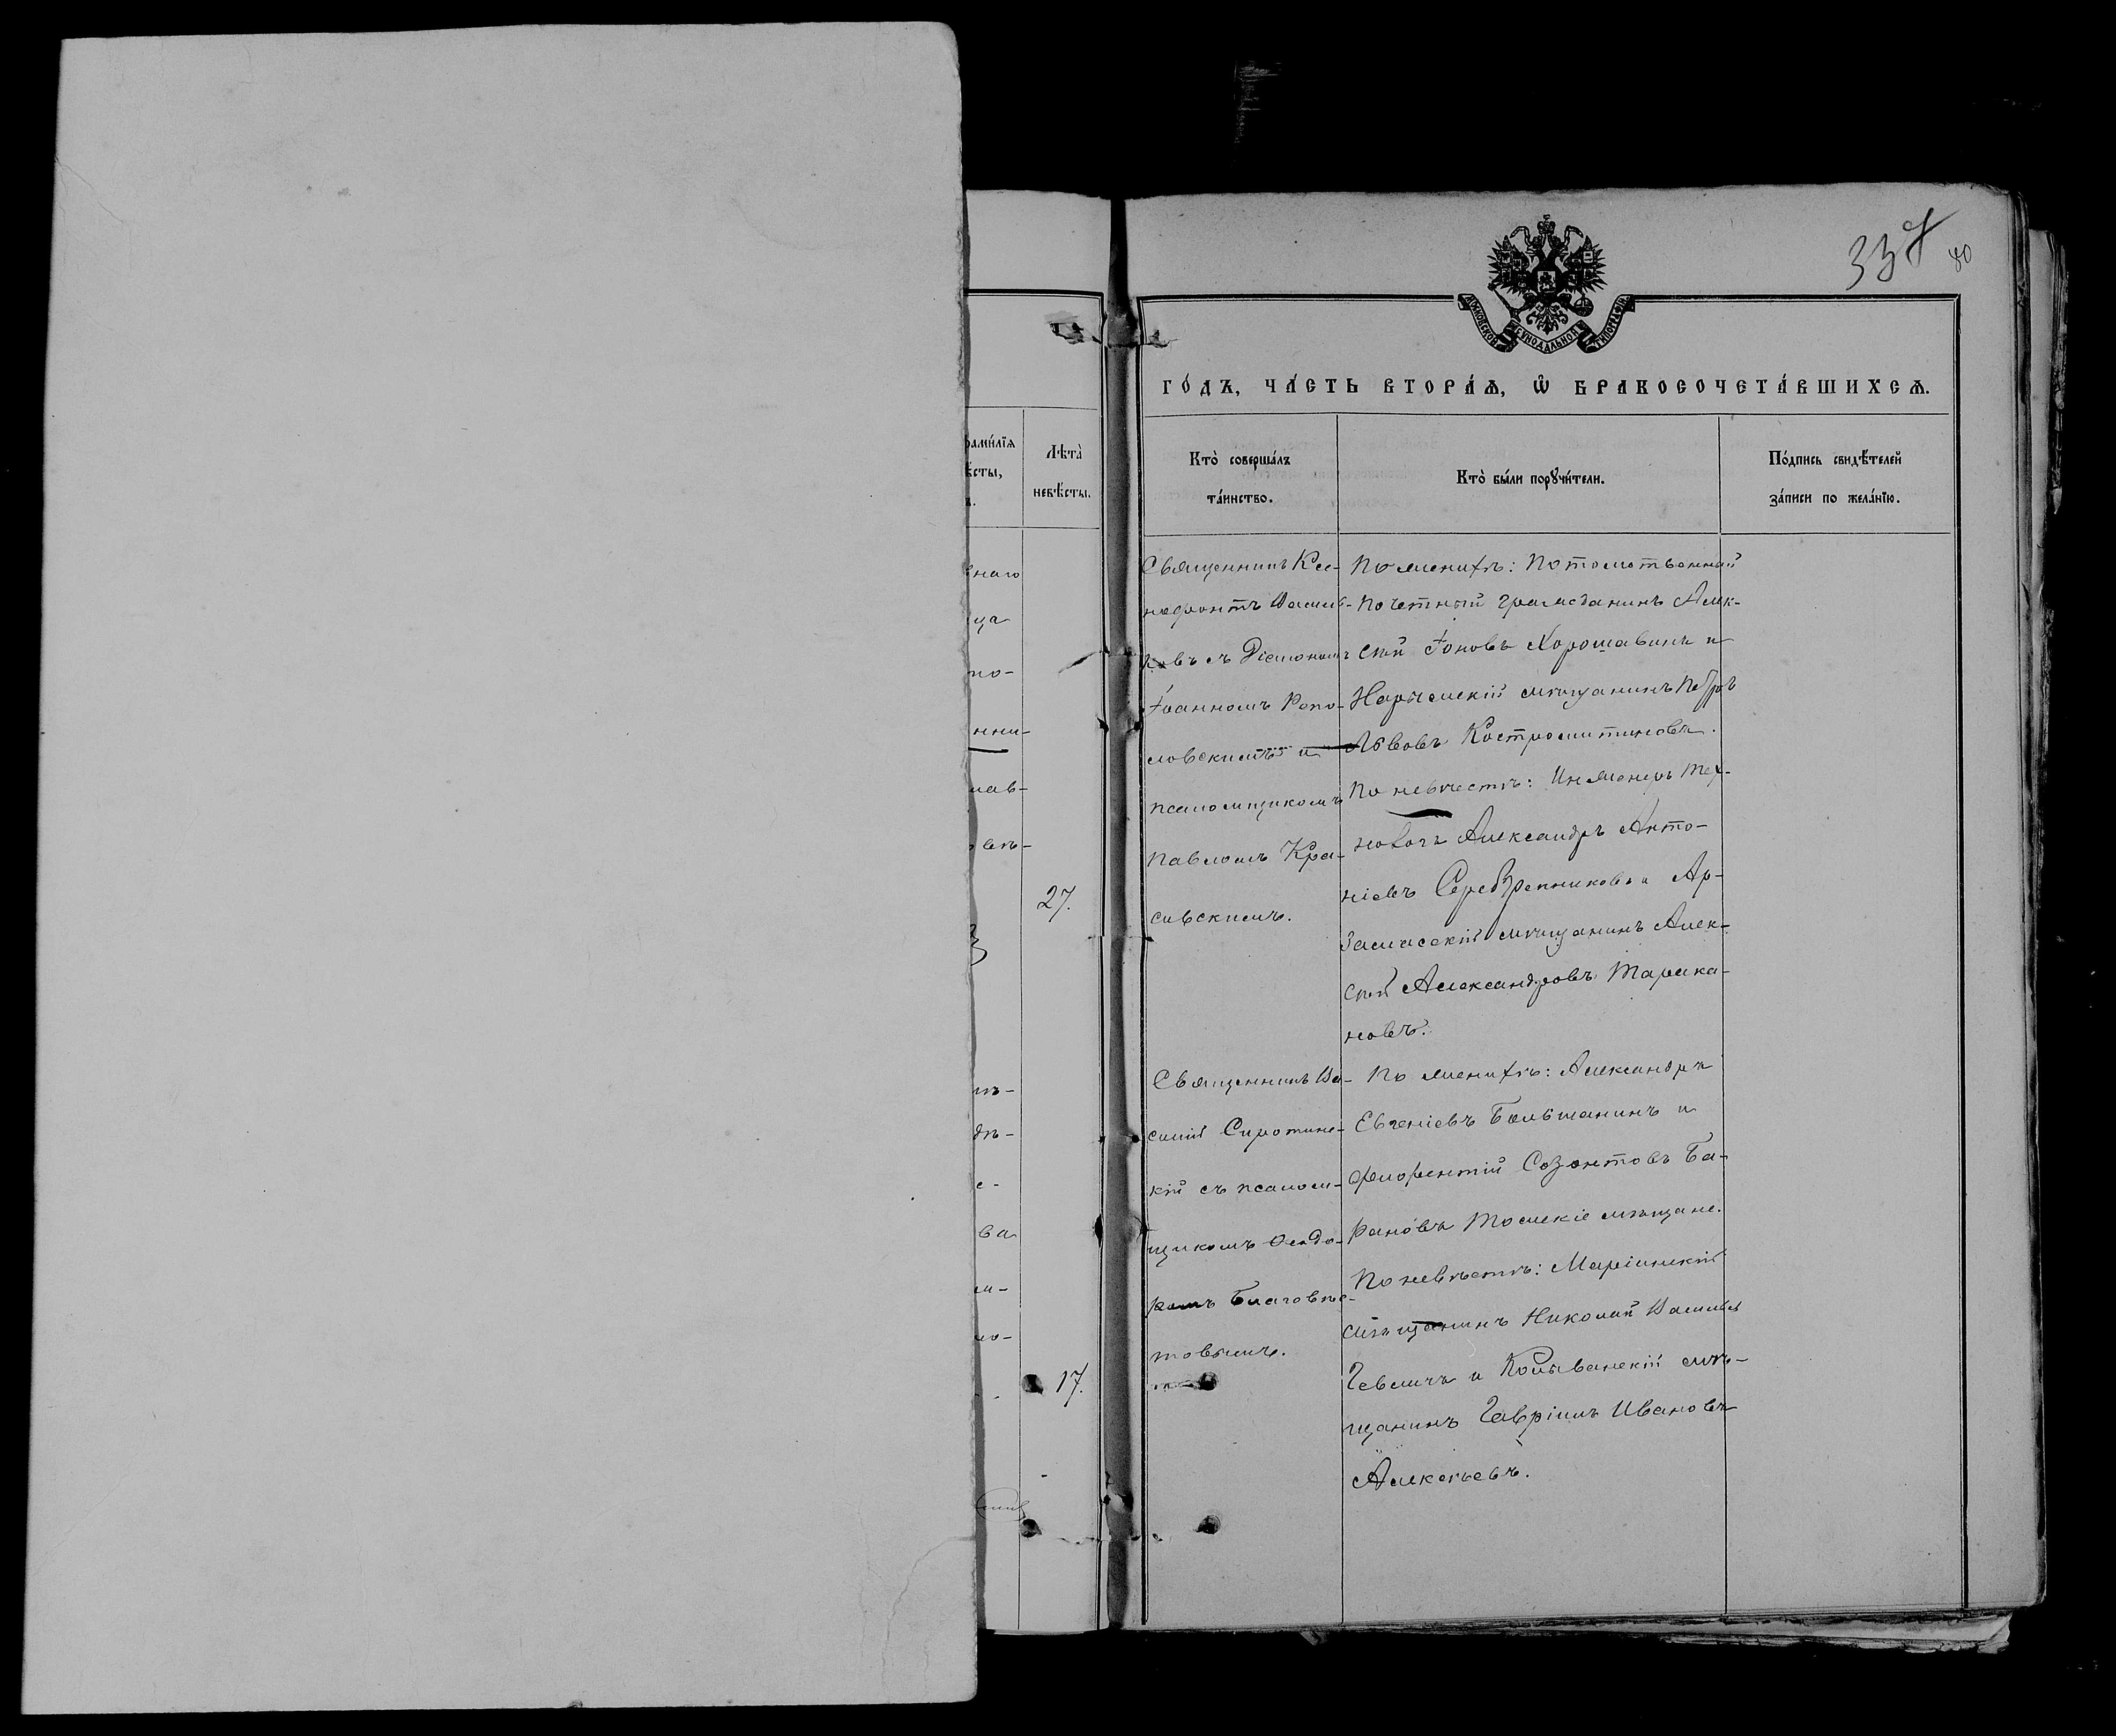 337
80
МОСКОВСКОЙ СѴНОДАЛЬНОЙ ТИПОГРАФІИ
ГО́ДЪ, ЧА́СТЬ ВТОРА́Ѧ, Ѽ БРАКОСОЧЕТА́ВШИХСѦ.
Лѣта̀
невѣ́сты.
Кто̀ соверша́лъ
та́инство.
Кто̀ бы́ли порꙋчи́тели.
По́дпись свидѣ́телей
за́писи по жела́нїю.
27.
17.
Священникъ Ксе-
нофонтъ Василь-
ковъ съ Діакономъ
Іоанномъ Репо-
ловскимъ и
псаломщикомъ
Павломъ Кра-
сивскимъ.
По женихѣ: Потомственный
почетный гражданинъ Алек-
сѣй Іоновъ Хорошавинъ и
Нарымскій мѣщанинъ Петръ
Львовъ Костромитиновъ.
По невѣстѣ: Инженеръ тех-
нологъ Александръ Анто-
ніевъ Серебренниковъ и Ар-
замасскій мѣщанинъ Алек-
сѣй Александровъ Тарака-
новъ.
Священникъ Ва-
силій Сиротин-
кій съ псалом-
щикомъ Ѳеодо-
ромъ Благовѣс-
товымъ.
По женихѣ: Александръ
Евгеніевъ Большанинъ и
Флорентій Созонтовъ Ба-
рановъ Томскіе мѣщане.
По невѣстѣ: Маріинскій
мѣщанинъ Николай Василье
Гевличъ и Колыванскій мѣ-
щанинъ Гавріилъ Ивановъ
Алексѣевъ.